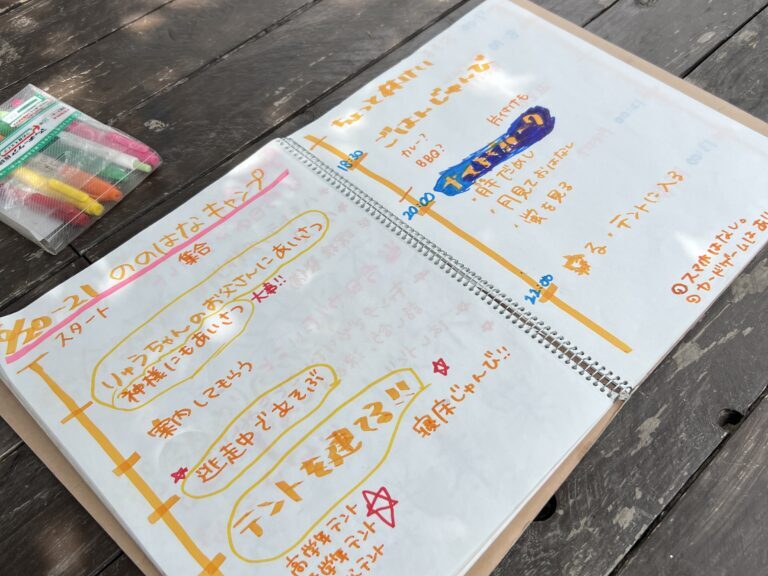 20-21 ののはなキャンプ
スタート
集合
りゅうちゃんのお父さんにあいさつ
神様にもあいさつ
大事!!
案内してもらう
逃走中であそぶ
テントを建てる!!
寝床じゅんび!!
高学年テント
学年テント
テント
ちょっときゅうけい
ごはんじゅんび
18:30
カレー?
BBQ?
片づけも
20:00
ナイトウォーク
・胆だめし
・月見ておはなし
・蛍を見る
22:00
ねる・テントに入る
①スマホはなし。
②カードゲームはあり